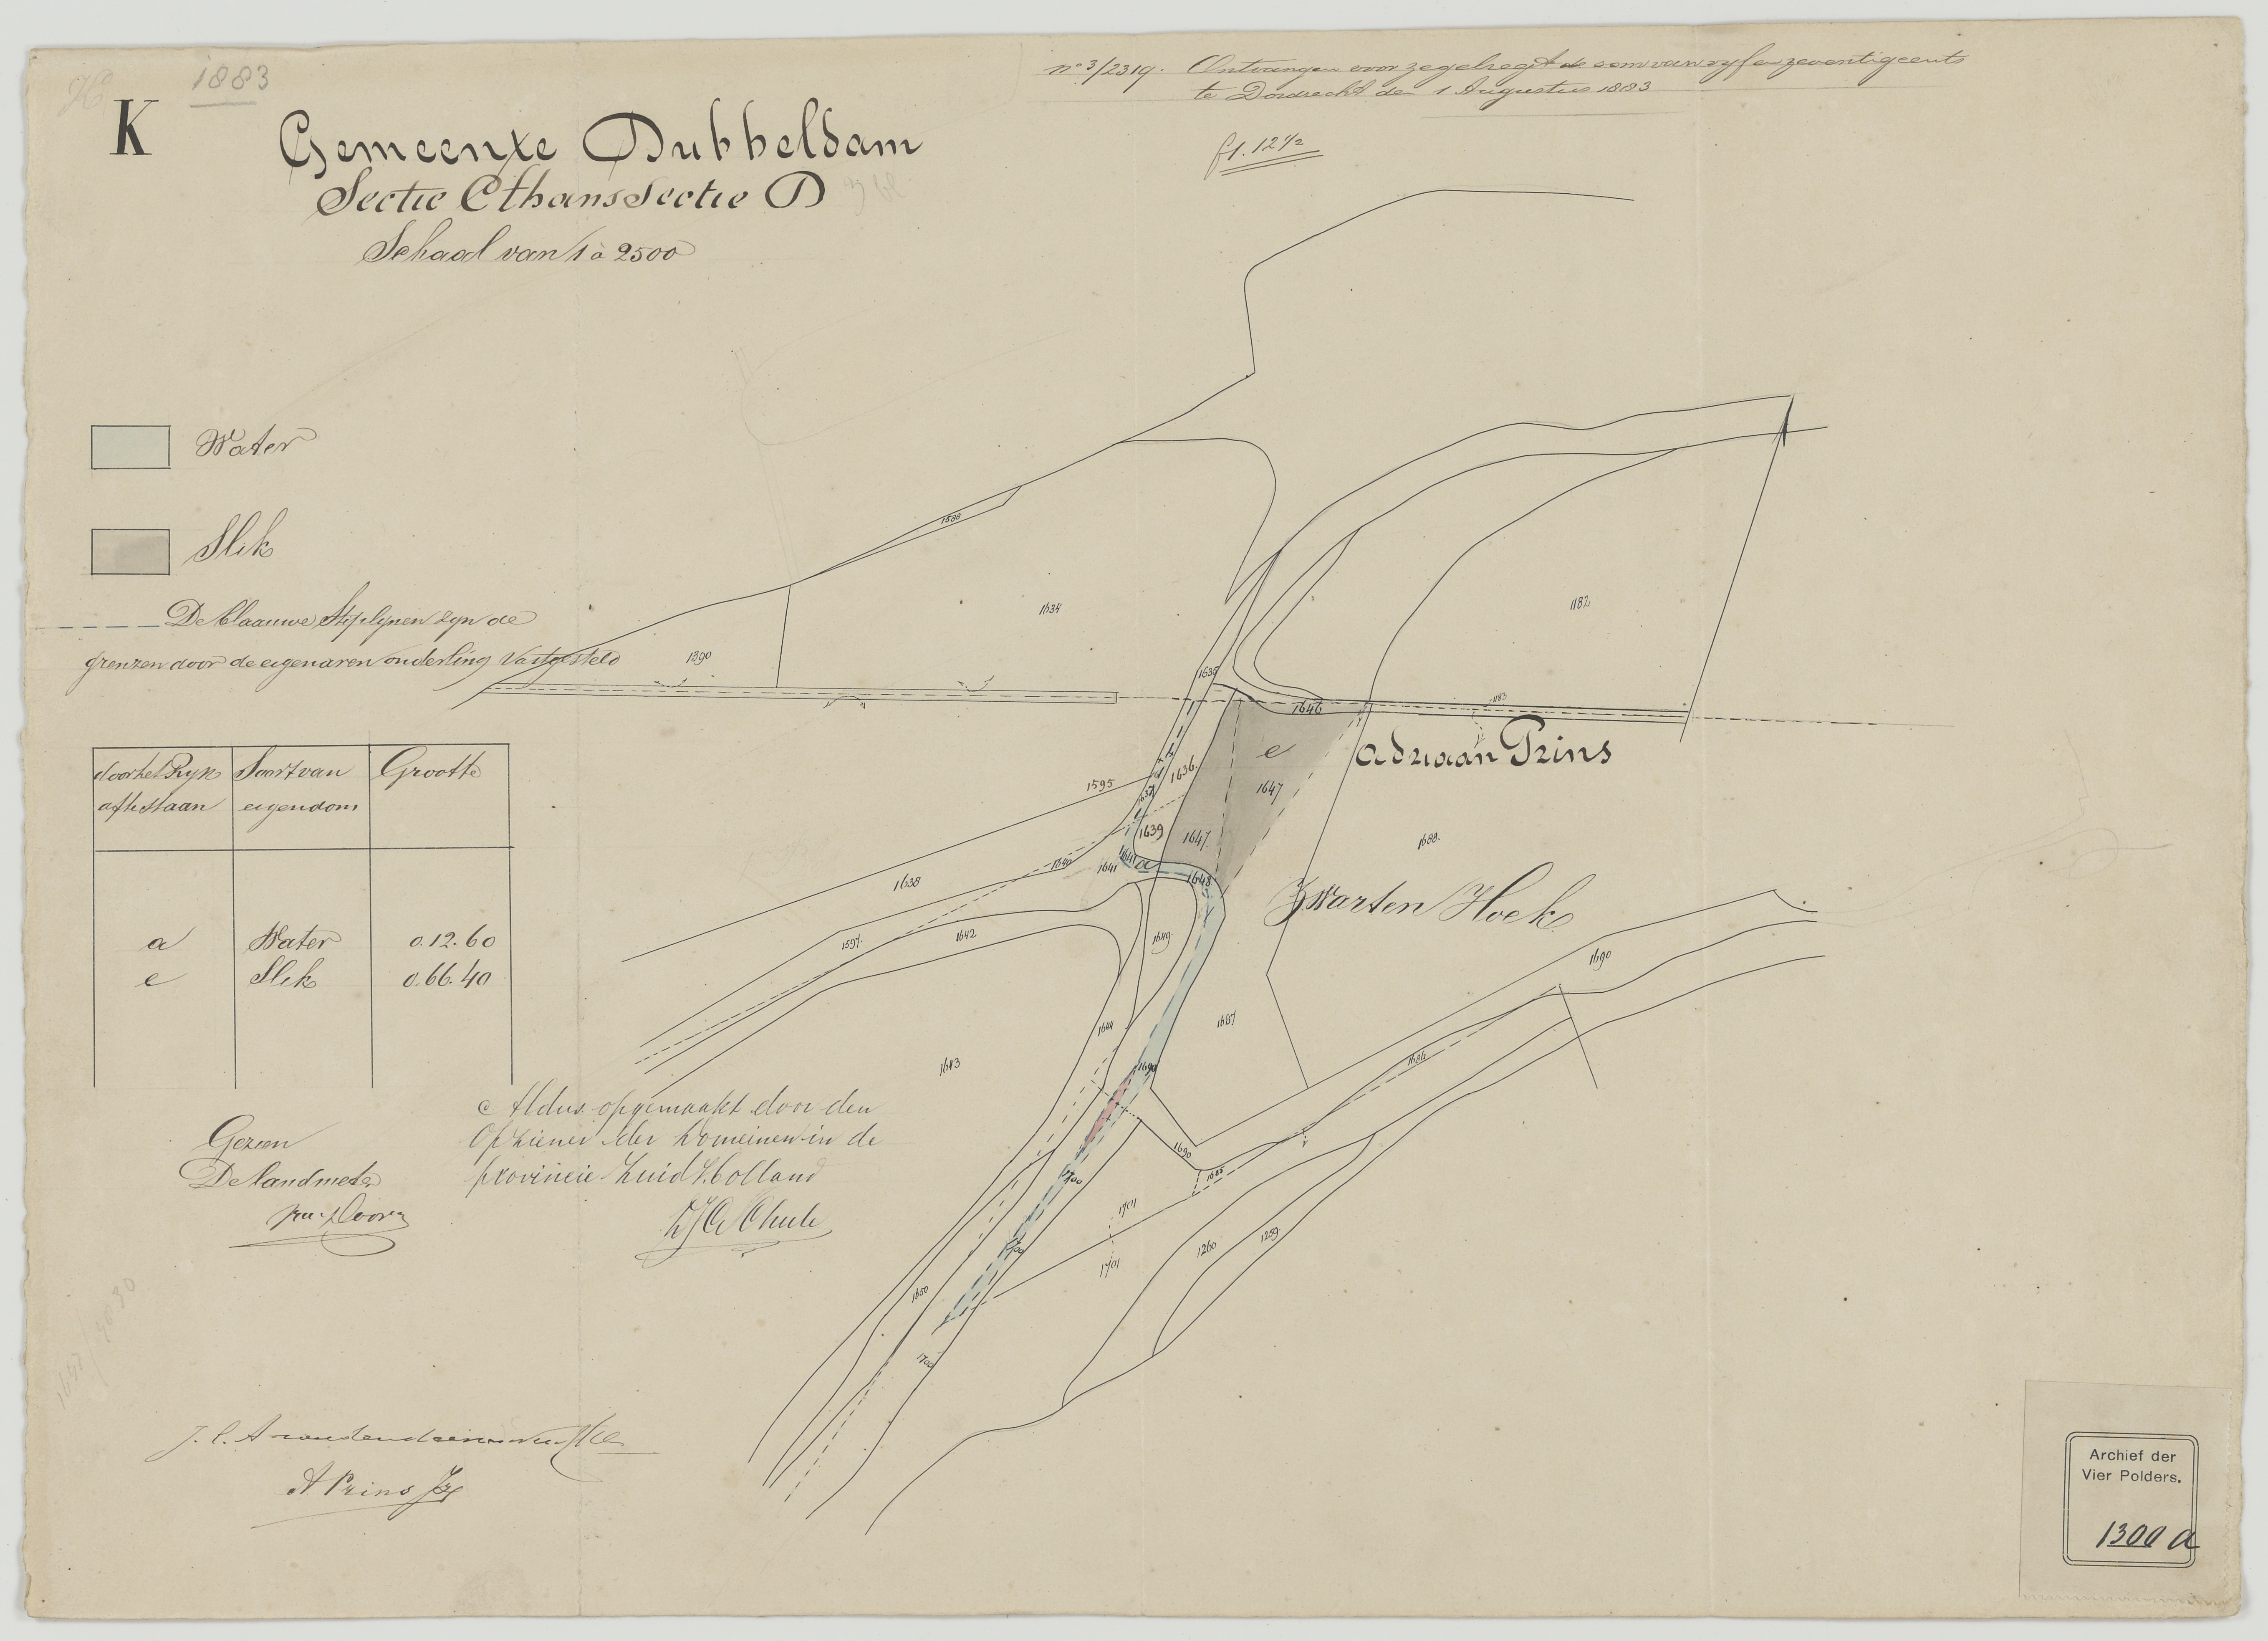 K
1883
nº 3/2319. Ontvangen voor zegelregt de som van vyf en zeventig cents
te Dordrecht den 1 Augustus 1883
f 1.12½
Gemeente Dubbeldam
Sectie C thans Sectie D
Schaal van 1 à 2500
Water
Slik
De blaauwe Stiplynen zyn de
grenzen door de eigenaren onderling Vastgesteld
door het Ryk aftestaan
Soort van eigendom
Grootte
a Water 0.12.60
e Slik 0.66.40
Gezien
De Landmeter
Aldus opgemaakt door den
Opziener der Domeinen in de
provincie Zuid Holland
A Prins Jzn
1588
1634
1390
1182
1183
1635
1646
e
Adriaan Prins
1647
1636
1595
1637
1639
1647
1640
1641
a
1648
1638
1688
Zwarten Hoek
1597
1642
1649
1690
1644
1687
1643
1686
1690
1690
1685
1700
1701
1701
1700
1260
1259
1650
1700
Archief der
Vier Polders.
1300 a